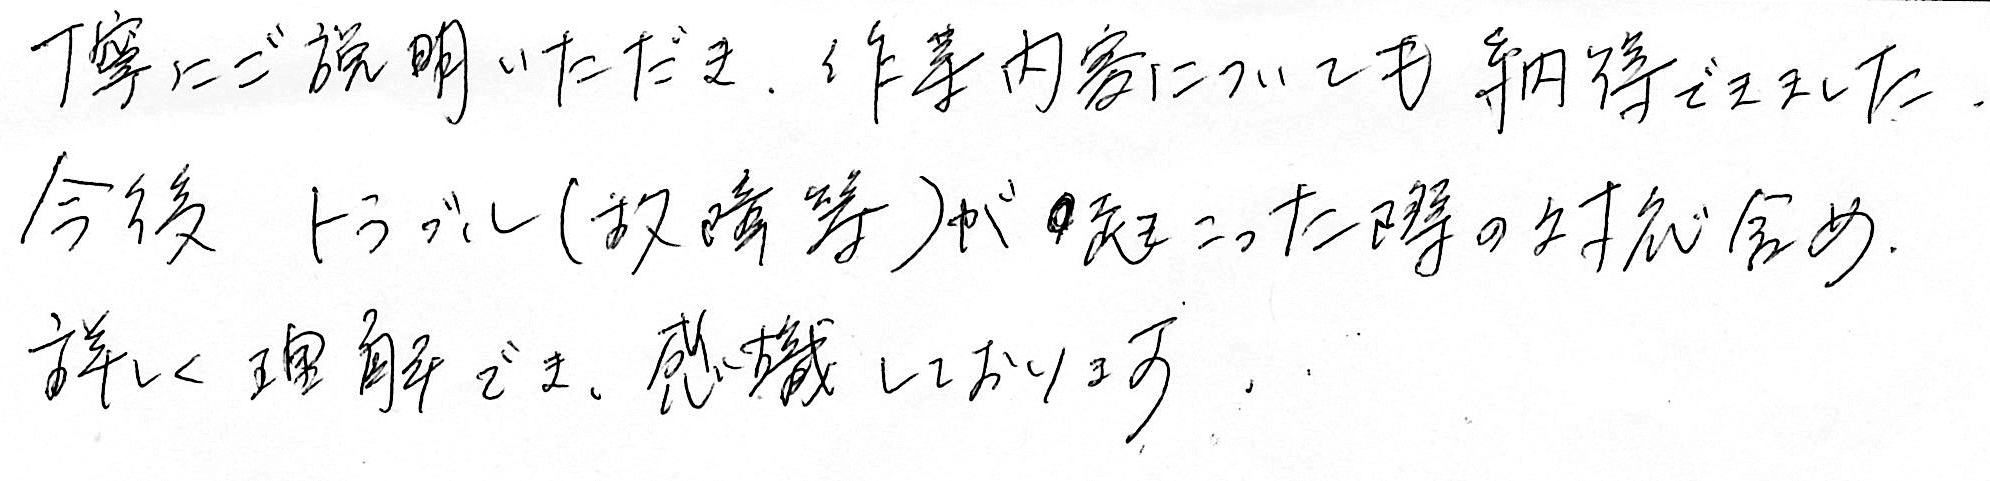 丁寧にご説明いただき、作業内容についても納得できました。
今後 トラブル(故障等)が起こった際の対応含め、
詳しく理解でき、感謝しております。